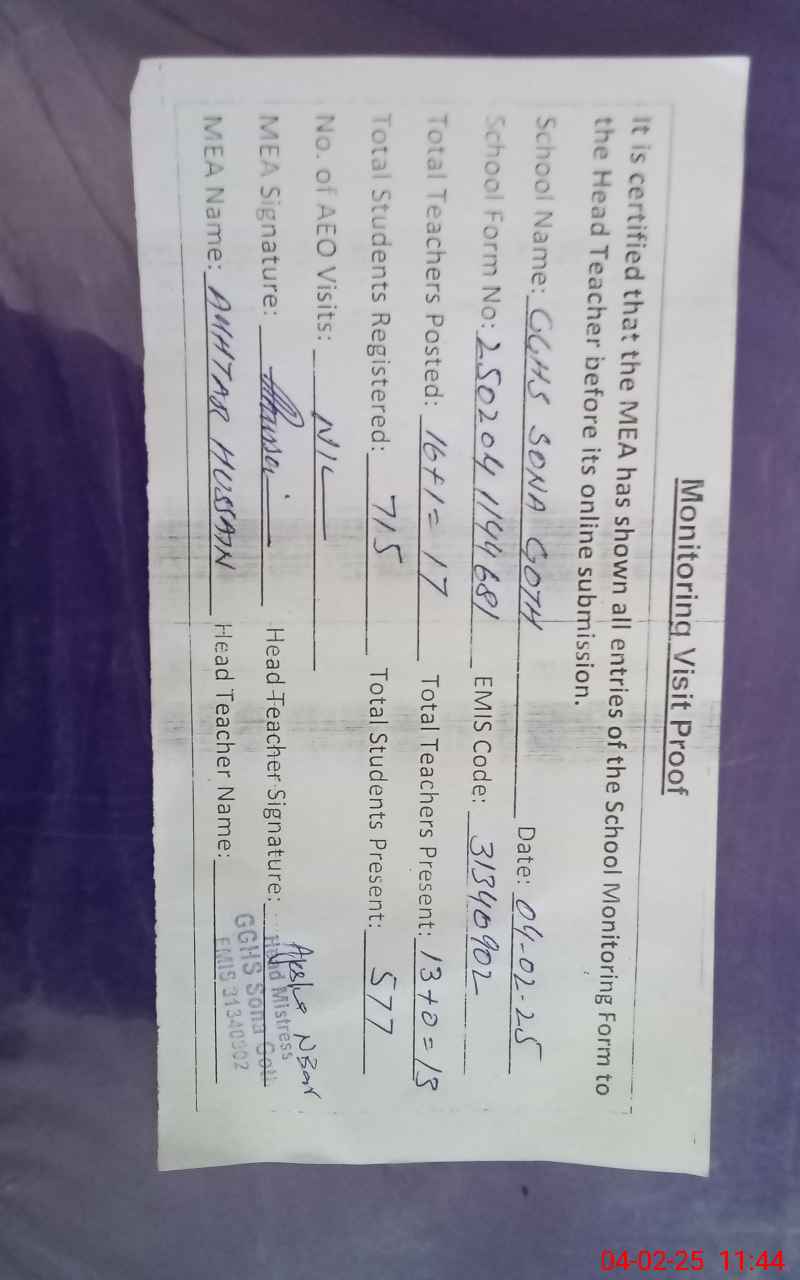 Monitoring Visit Proof
It is certified that the MEA has shown all entries of the School Monitoring Form to
the Head Teacher before its online submission.
School Name: GGHS SONA GOTH Date: 04-02-25
School Form No: 250204 1144 681 EMIS Code: 31340902
Total Teachers Posted: 16+1= 17 Total Teachers Present: 13+0=13
Total Students Registered: 715 Total Students Present: 577
No. of AEO Visits: NIL
MEA Signature: Head Teacher Signature:
Head Mistress
MEA Name: AKHTAR HUSSAIN Head Teacher Name:
GGHS Sona Goth
EMIS 31340902
04-02-25 11:44